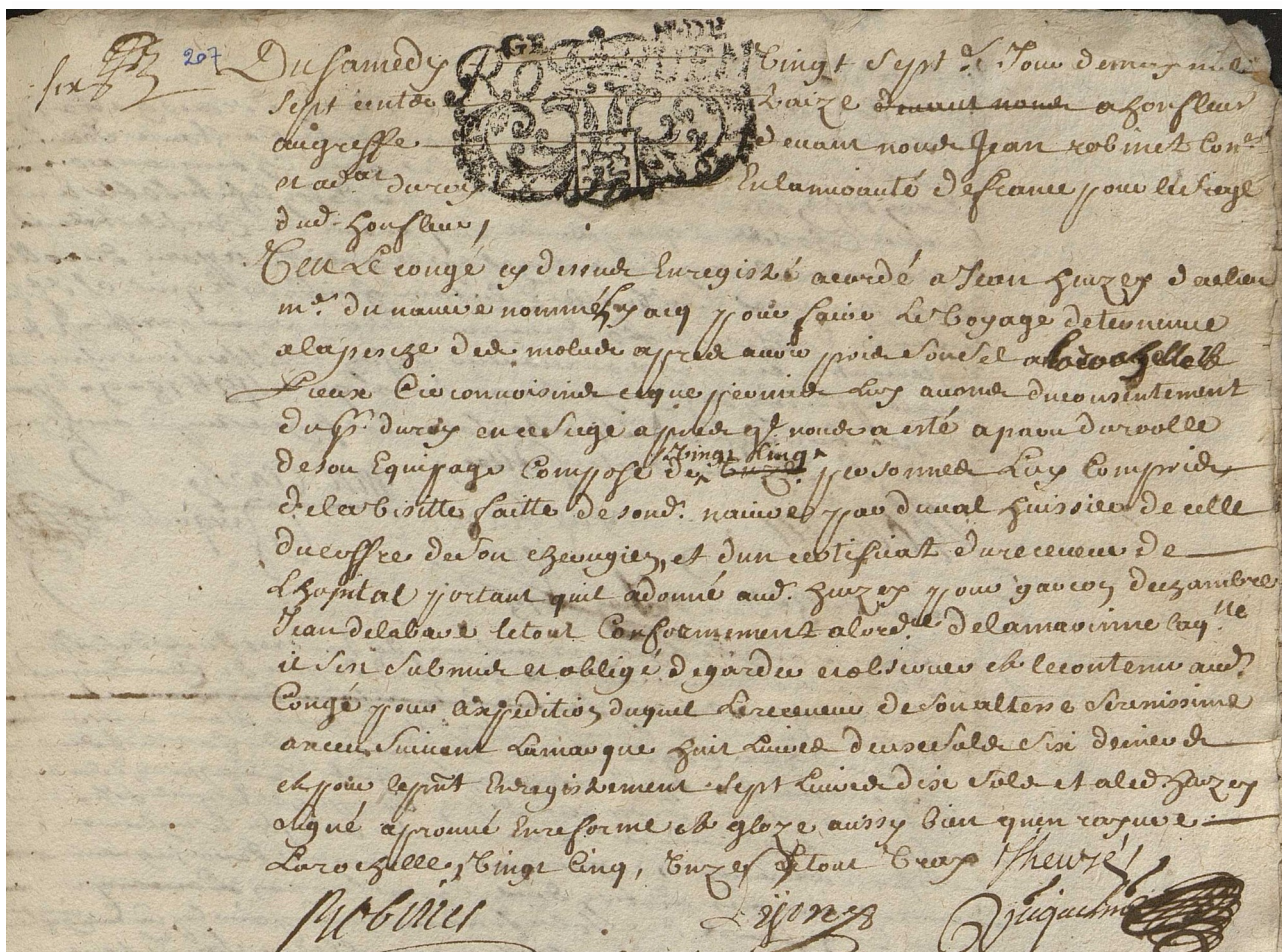 six 207 Du samedy vingt septe. Jour de may mil
sept centz traize devant nous a honfleur
au greffe devant nous Jean robinet Coner.
et adat du roy En lamirauté de france pour le siege
dud. honfleur,
Veu Le congé cy dessus Enregistré acordé a Jean huzey
me. du navire nommé pour faire Le Voyage de terneuve
a la pesche des molues apres avoir pris son sel a la rochelle &
Lieux Circonvoisins et que permis Luy avons du consentement
du pr. du roy en ce siege apres q. nous a esté aparu du rolle
de son Equipage Composé de vingt Cinq personnes Luy Compris
de la visitte faitte de sond. navire par duval huissier de celle
du coffre de son chirugien, et d'un certificat du receveur de
Lhopital portant quil a donné aud. huzey pour garcon de chambre
Jean delabare le tout Conformement a lord.ce de la marinne laq.lle
il sest submis et obligé de garder et observer & le contenu aud.
Congé pour lexpedition duquel Le receveur de son altesse serenissime
a receu suivant La marque huit Livres douze sols six deniers
& pour le pnt Enregistrement sept Livres dix sols et a led. huzey
signé aprouvé En reforme & gloze aussy bien qu'en rature
La rochelle, Vingt Cinq, le tout Vray J heuzé
Robinet Duquesne